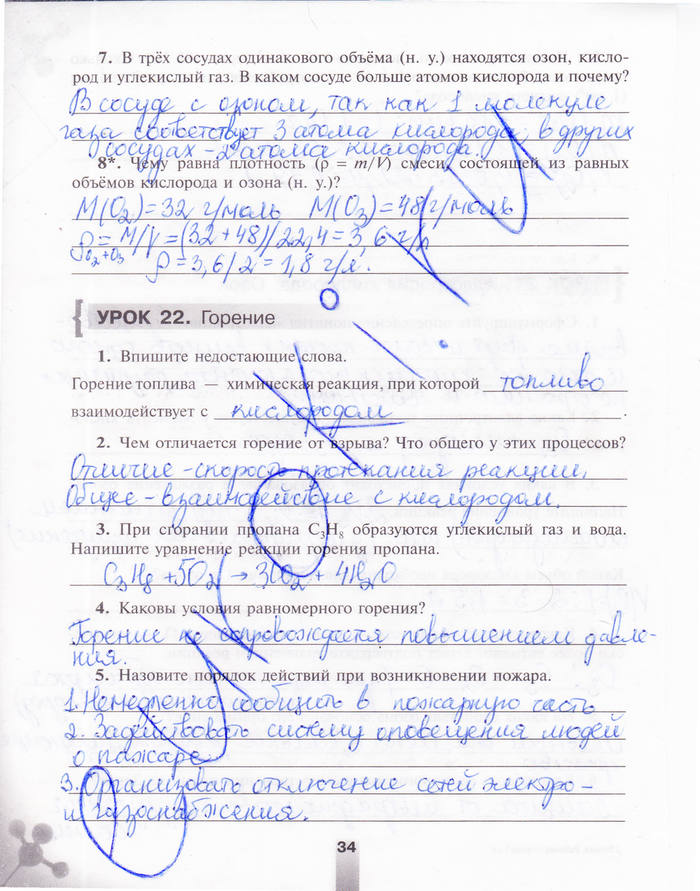 7. В трёх сосудах одинакового объёма (н. у.) находятся озон, кисло-
род и углекислый газ. В каком сосуде больше атомов кислорода и почему?
В сосуде с озоном, так как 1 молекуле
газа соответствует 3 атома кислорода, в других
сосудах - 2 атома кислорода.
8*. Чему равна плотность (ρ = m/V) смеси, состоящей из равных
объёмов кислорода и озона (н. у.)?
M(O₂)=32 г/моль M(O₃)=48 г/моль
ρ = M/V = (32+48)/22,4 = 3,6 г/л
O₂+O₃
ρ = 3,6/2 = 1,8 г/л.
УРОК 22. Горение
1. Впишите недостающие слова.
Горение топлива — химическая реакция, при которой топливо
взаимодействует с кислородом.
2. Чем отличается горение от взрыва? Что общего у этих процессов?
Отличие - скорость протекания реакции.
Общее - взаимодействие с кислородом.
3. При сгорании пропана C₃H₈ образуются углекислый газ и вода.
Напишите уравнение реакции горения пропана.
C₃H₈ + 5O₂ → 3CO₂ + 4H₂O
4. Каковы условия равномерного горения?
Горение не сопровождается повышением давле-
ния.
5. Назовите порядок действий при возникновении пожара.
1. Немедленно сообщить в пожарную часть
2. Задействовать систему оповещения людей
о пожаре.
3. Организовать отключение сетей электро-
и газоснабжения.
34